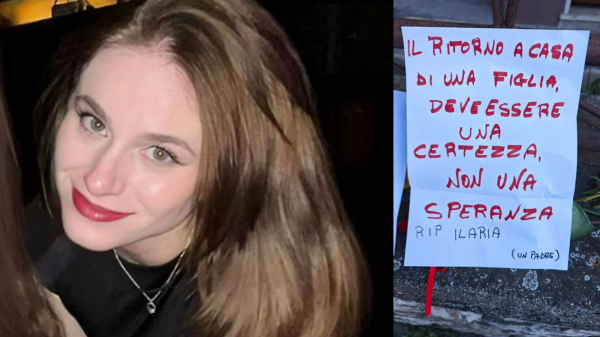 IL RITORNO A CASA
DI UNA FIGLIA,
DEVE ESSERE
UNA
CERTEZZA,
NON UNA
SPERANZA
RIP ILARIA
(UN PADRE)